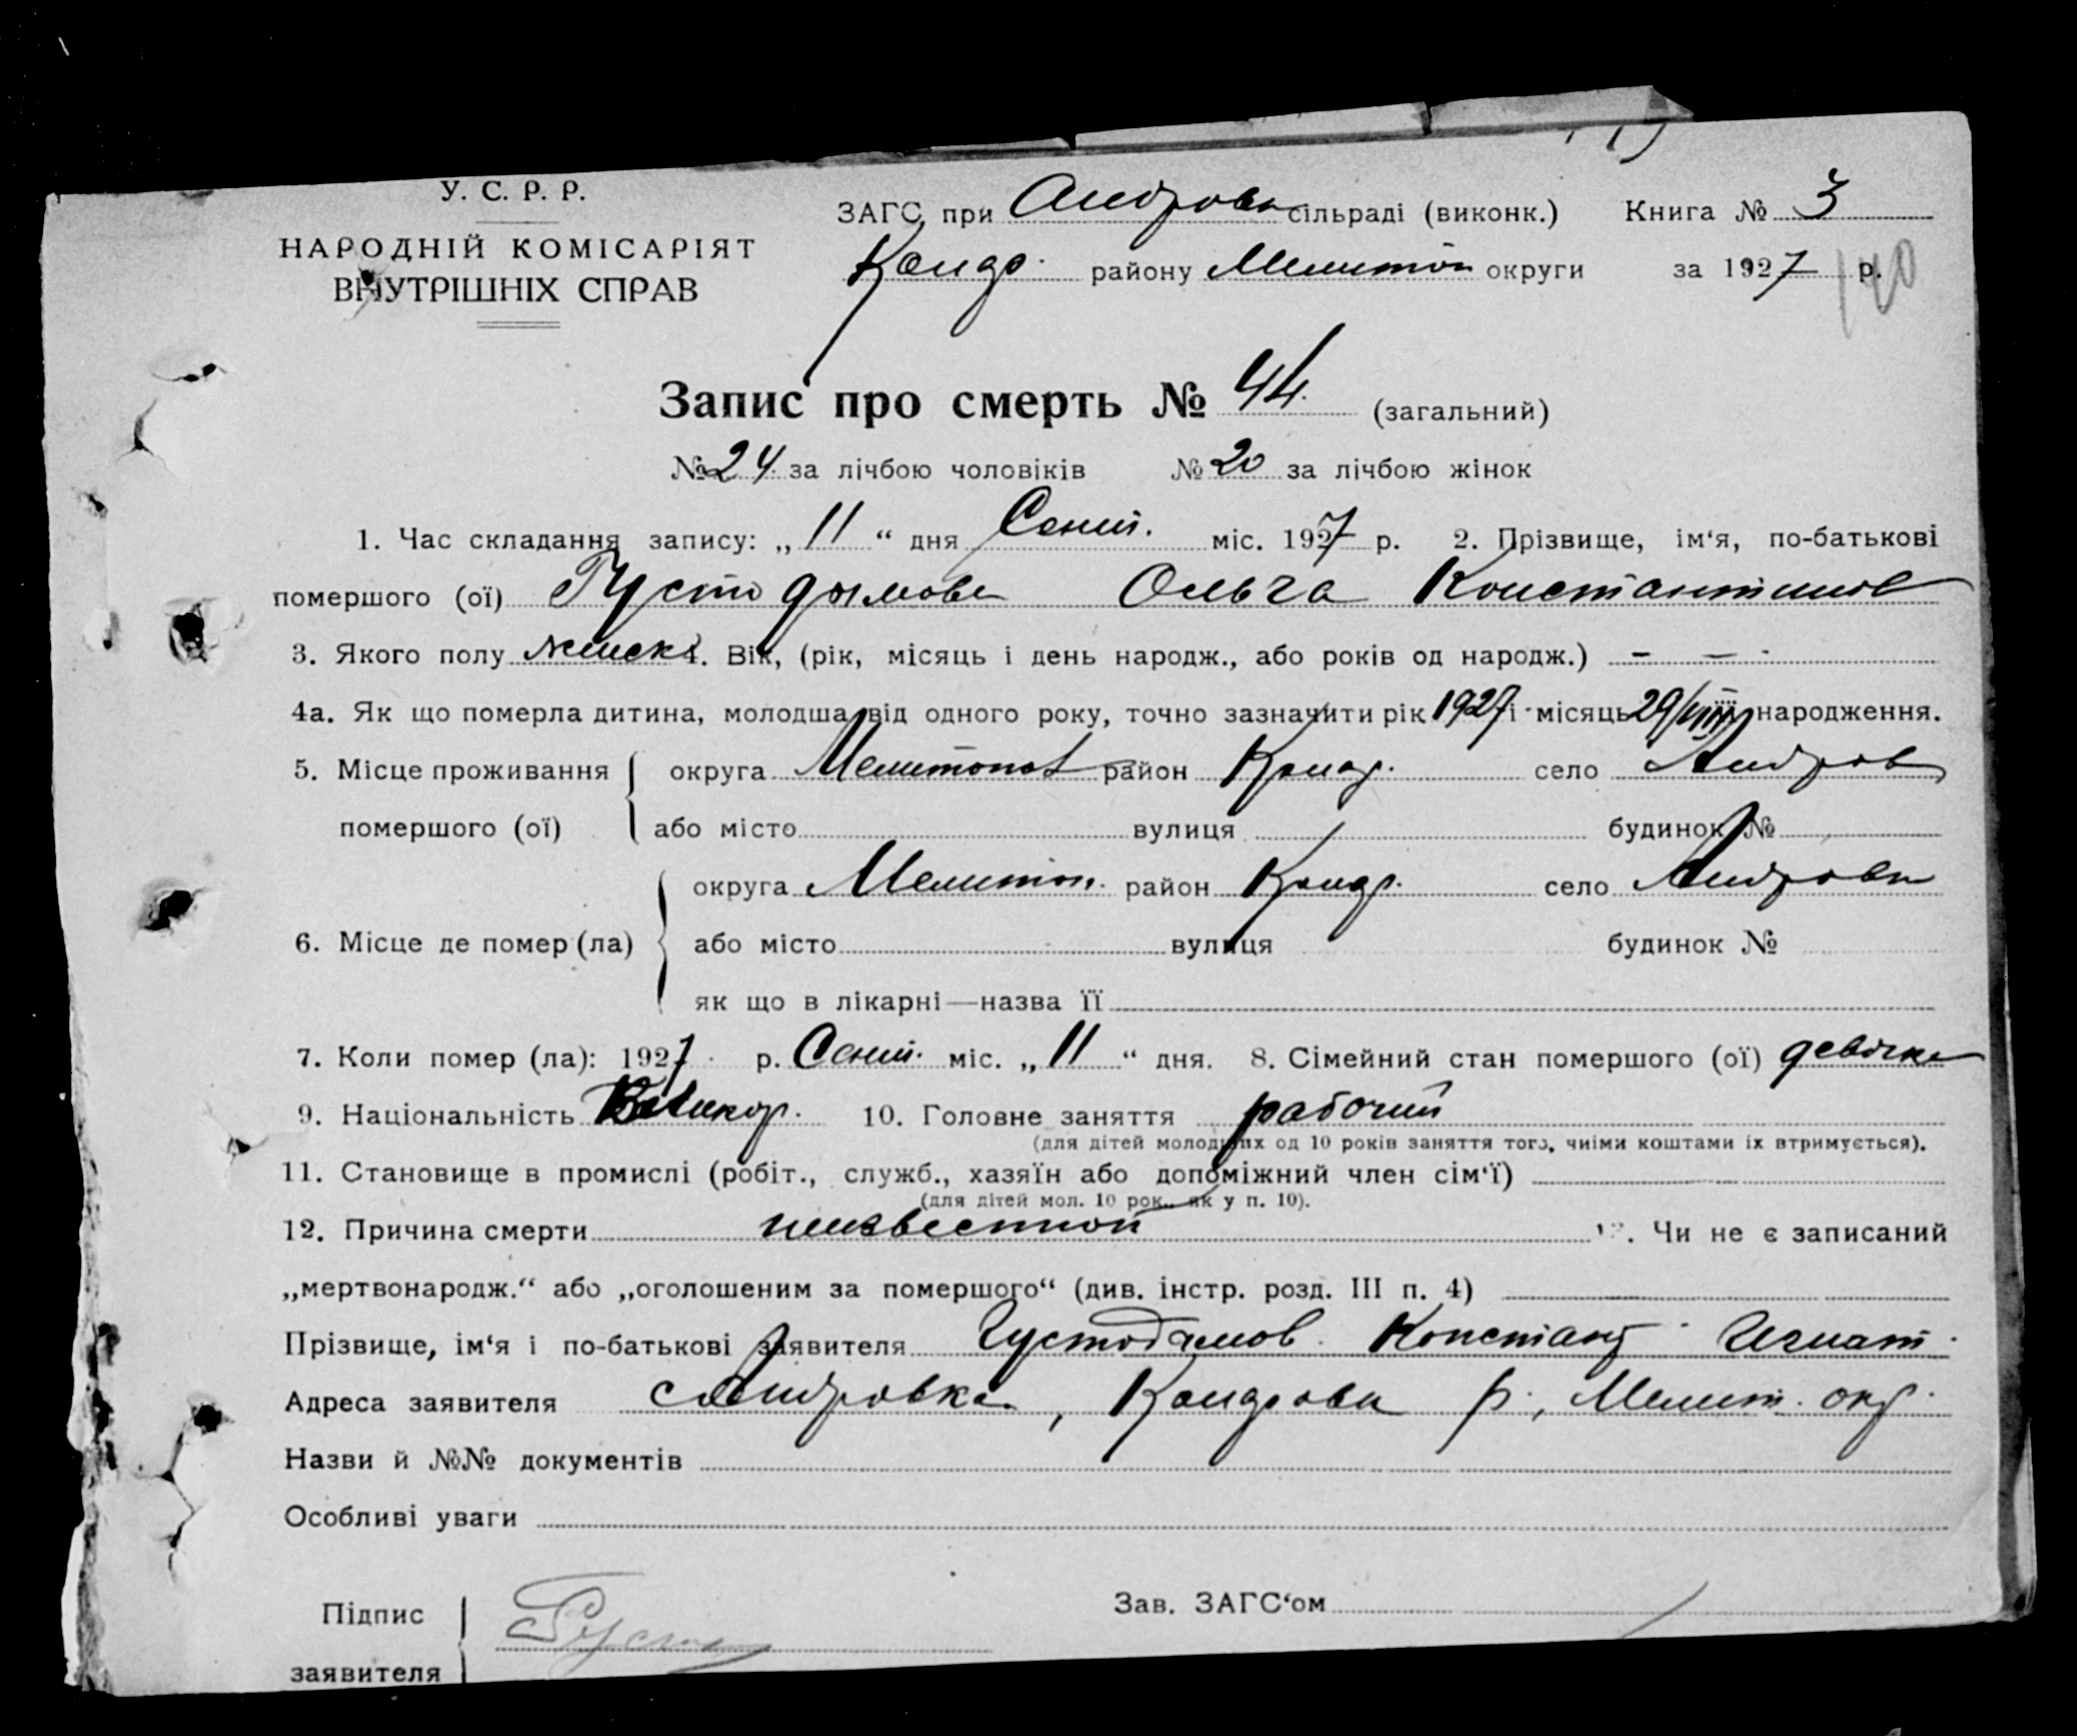 У. С. Р. Р.
НАРОДНІЙ КОМІСАРІЯТ
ВНУТРІШНІХ СПРАВ
ЗАГС при Андровк сільраді (виконк.) Книга № 3
Кондр. району Мелитоп округи за 1927 р.
140
Запис про смерть № 44. (загальний)
№ 24 за лічбою чоловіків № 20 за лічбою жінок
1. Час складання запису: „ 11 “ дня Сент. міс. 1927 р. 2. Прізвище, ім‘я, по-батькові
помершого (ої) Густодымова Ольга Константинов
3. Якого полу женск 4. Вік, (рік, місяць і день народж., або років од народж.) – – -
4а. Як що померла дитина, молодша від одного року, точно зазначити рік 1927 і місяць 29/VIII народження.
5. Місце проживання округа Мелитопол район Кондр. село Андров
помершого (ої) або місто вулиця будинок №
округа Мелитоп. район Кондр. село Андровк
6. Місце де помер (ла) або місто вулиця будинок №
як що в лікарні—назва її
7. Коли помер (ла): 1927 р. Сент. міс. „ 11 “ дня. 8. Сімейний стан помершого (ої) девочка
9. Національність Великор. 10. Головне заняття рабочий
(для дітей молодших од 10 років заняття того, чиїми коштами їх втримується).
11. Становище в промислі (робіт., служб., хазяїн або допоміжний член сім‘ї)
(для дітей мол. 10 рок., як у п. 10).
12. Причина смерти неизвестной 13. Чи не є записаний
„мертвонародж.“ або „оголошеним за помершого“ (див. інстр. розд. III п. 4)
Прізвище, ім‘я і по-батькові заявителя Густодымов Констант Игнат.
Адреса заявителя с Андровка, Кондровк р, Мелит. окр.
Назви й №№ документів
Особливі уваги
Підпис Зав. ЗАГС‘ом
заявителя